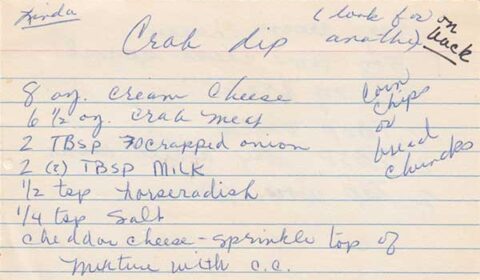 Linda
(look for another on back
Crab dip
8 oz. cream cheese
6 1/2 oz. crab meat
2 TBSP scrapped onion
2 (2) TBSP Milk
1/2 tsp horseradish
1/4 tsp salt
cheddar cheese - sprinkle top of
mixture with c.c.
corn
chips
or
bread
chunks